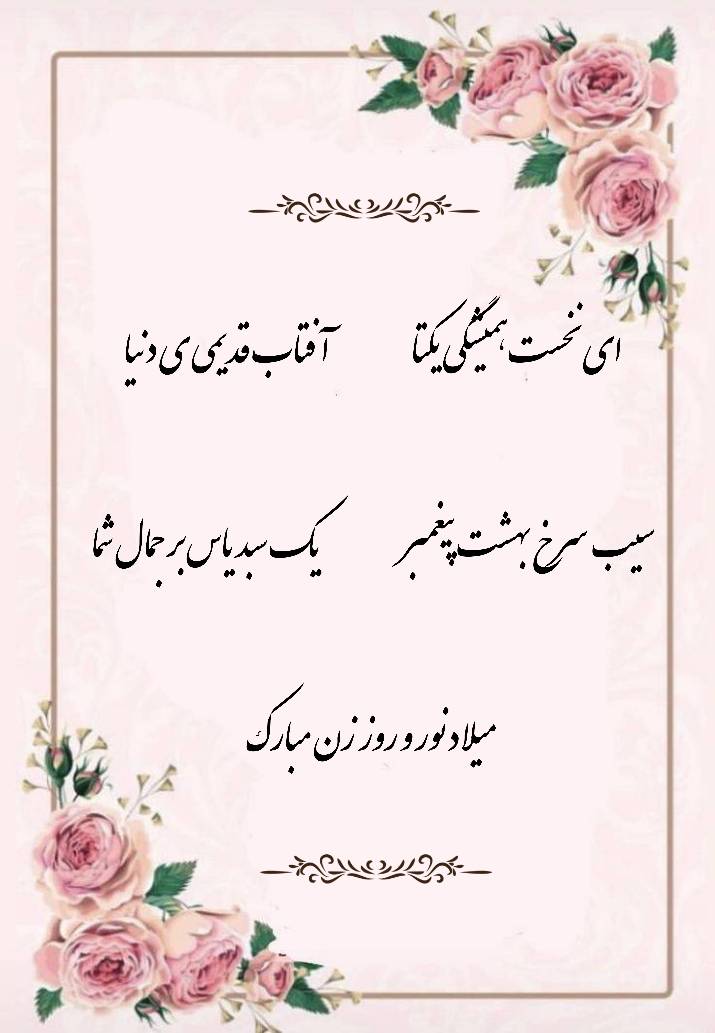 ای نخست همیشگی یکتا آفتاب قدیمی ی دنیا
سیب سرخ بهشت پیغمبر یک سبد یاس بر جمال شما
میلاد نور و روز زن مبارک